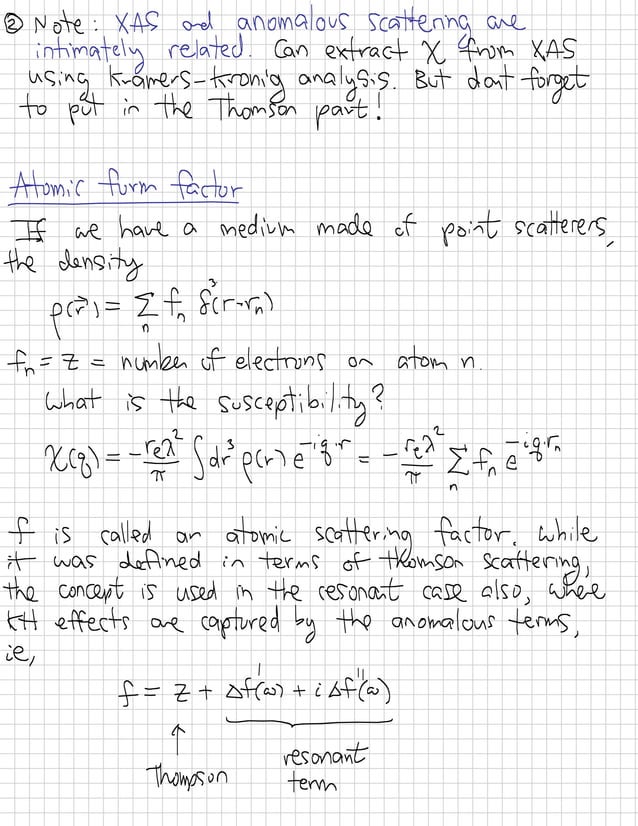 ② Note: XAS and anomalous scattering are
intimately related. Can extract χ from XAS
using Kramers-Kronig analysis. But dont forget
to put in the Thomson part!
Atomic form factor
If we have a medium made of point scatterers,
the density
ρ(r⃗) = Σₙ fₙ δ³(r-rₙ)
fₙ = Z = number of electrons on atom n.
What is the susceptibility?
χ(q) = -rₑλ²/π ∫dr³ ρ(r) e^(-iq·r) = -rₑλ²/π Σₙ fₙ e^(-iq·rₙ)
f is called an atomic scattering factor. While
it was defined in terms of Thomson scattering,
the concept is used in the resonant case also, where
KH effects are captured by the anomalous terms,
ie,
f = Z + Δf'(ω) + iΔf''(ω)
↑
Thompson
resonant
term